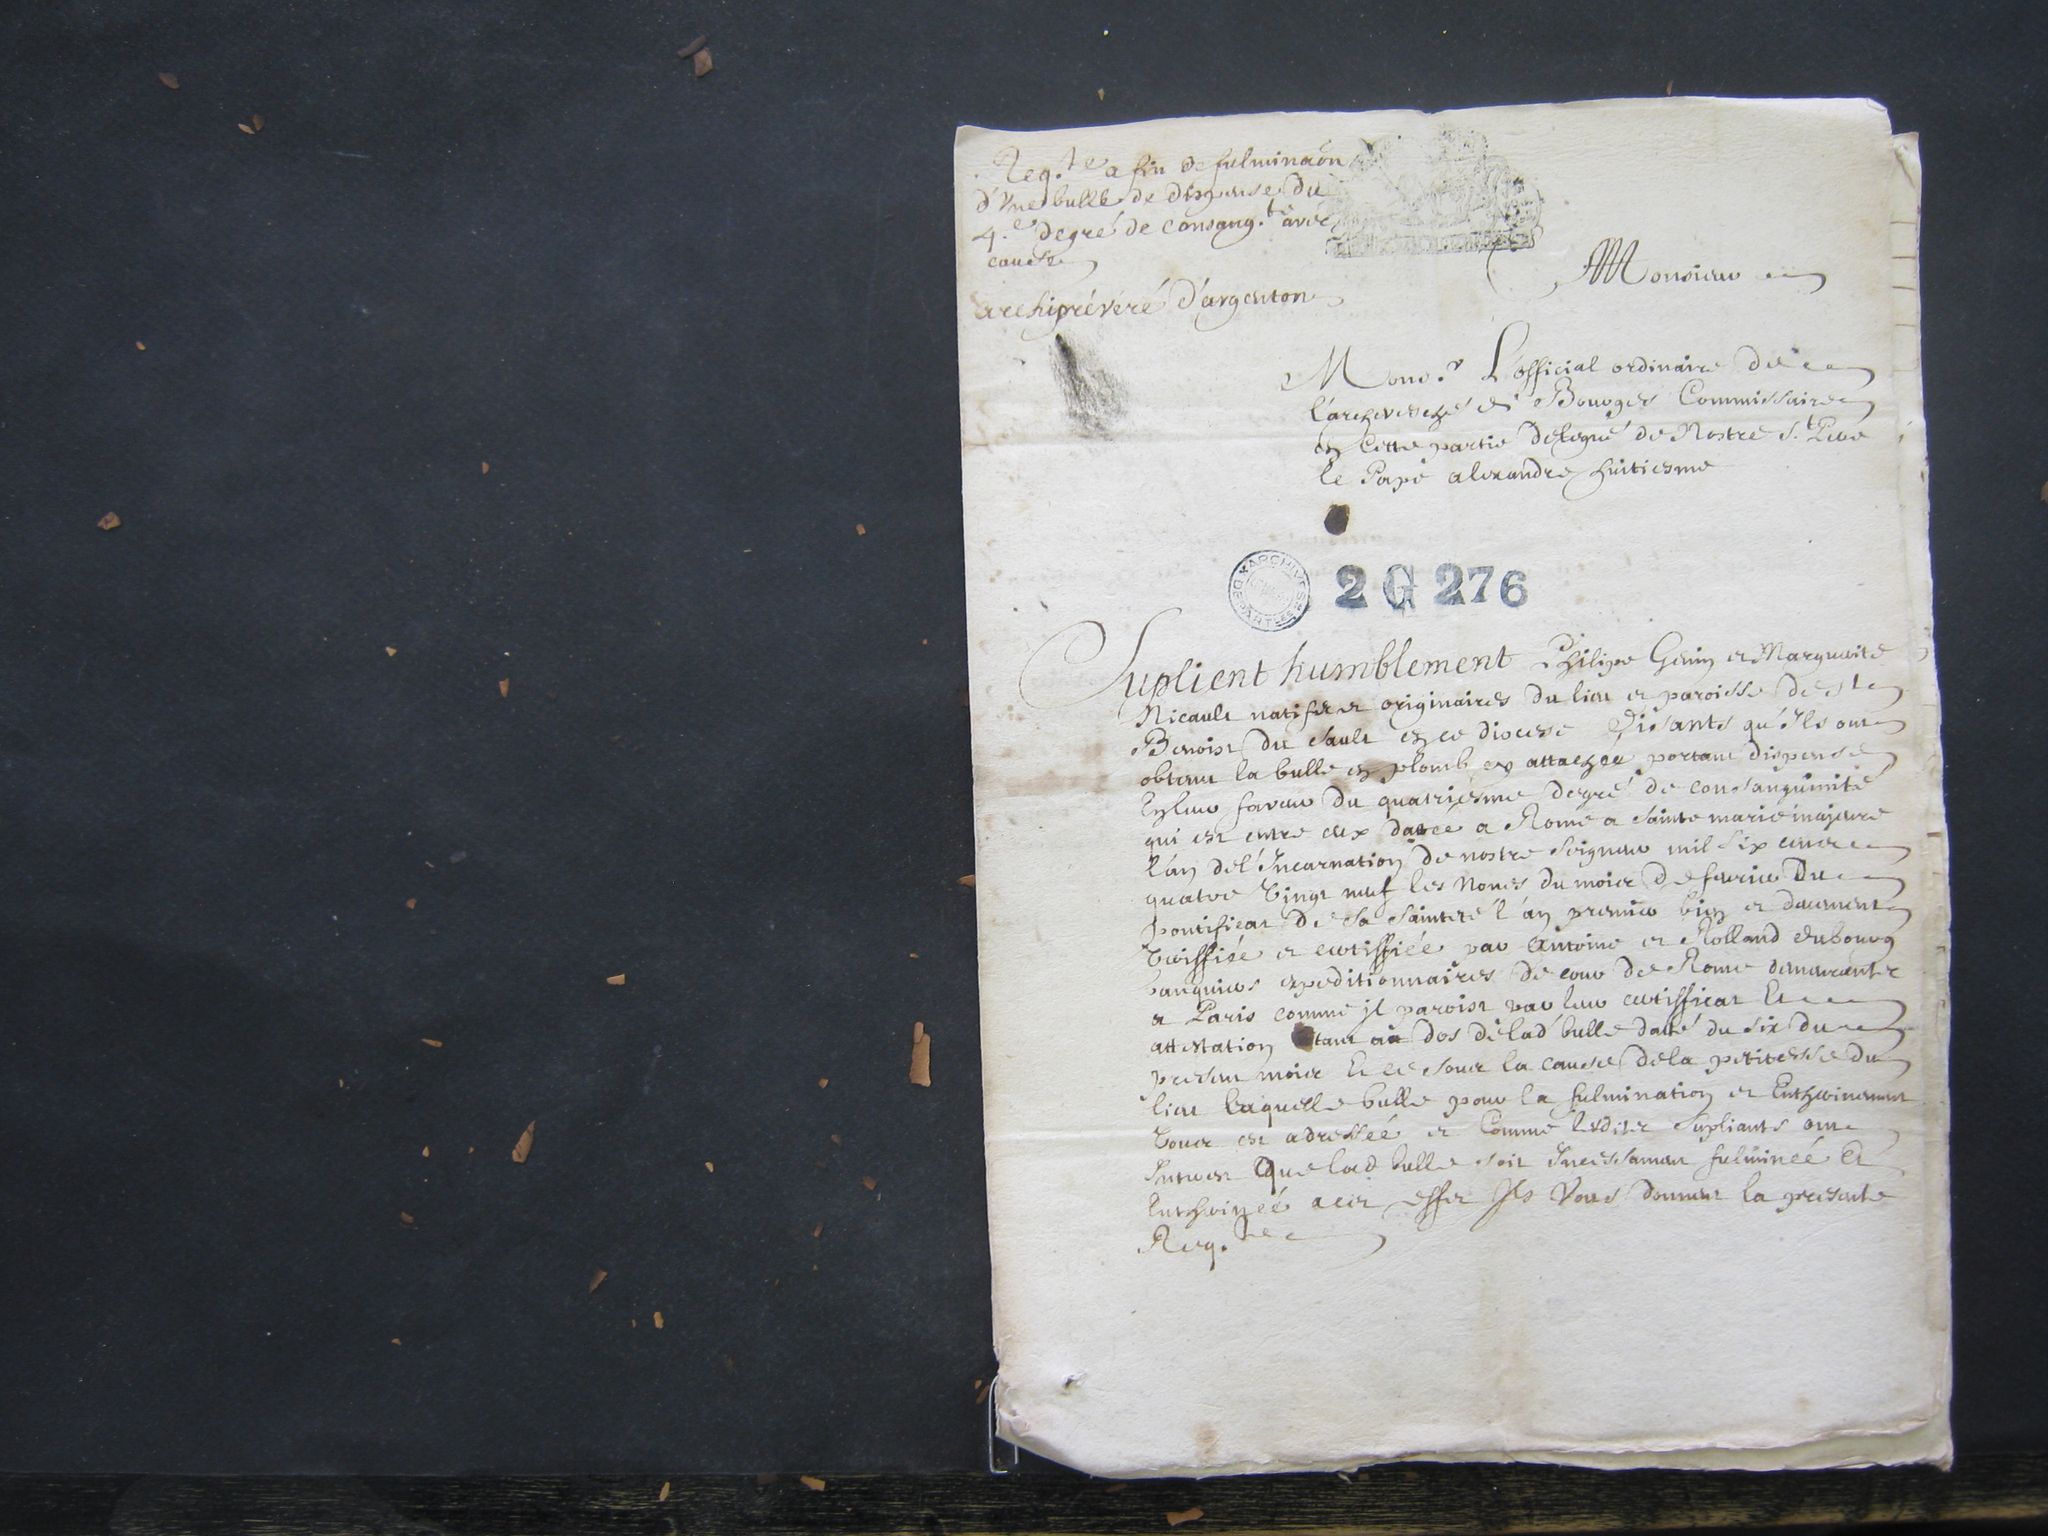 Req.te a fin de fulminaôn
d'Une bulle de dispense du
4.e degré de Consang.t avec
cause
archiprévéré d'argenton
Monsieur
Mons.r L'official ordinaire de
l'archevesché de Bourges Commissaire
en Cette partie delegué de Nostre S.t Pere
le Pape alexandre huitiesme
ARCHIVES
DEPARTLES
2 G 276
Suplient humblement Philipe Genin et Marguerite
Nicault natifs et originaires du lieu et paroisse de st
Benoist du Sault en ce diocese Disants qu'Ils ont
obtenu la bulle en plomb cy attachee portant dispense
En leur faveur du quatriesme degré de consanguinité
qui est entre eux dattée a Rome a sainte marie majeure
l'an del'Incarnation de nostre seigneur mil six cents
quatre Vingt neuf les Nones du mois de feuvrier du
pontificat de sa sainteté l'an premier bien et deuement
Veriffiée et certiffiée par antoine et Rolland dubourg
banquiers expeditionnaires de cour de Rome demeurants
a Paris comme jl paroist par leur certifficat Et
attestation Etant au dos de lad bulle datté du six du
present mois Et ce sous la cause dela petitesse du
lieu laquelle bulle pour la fulmination et Enthérinement
Vous est adressée et Comme lesdits Supliants ont
Interest que lad bulle soit Incessament fulminée Et
Entherinée a cet effet Ils Vous donnent la presente
Req.te